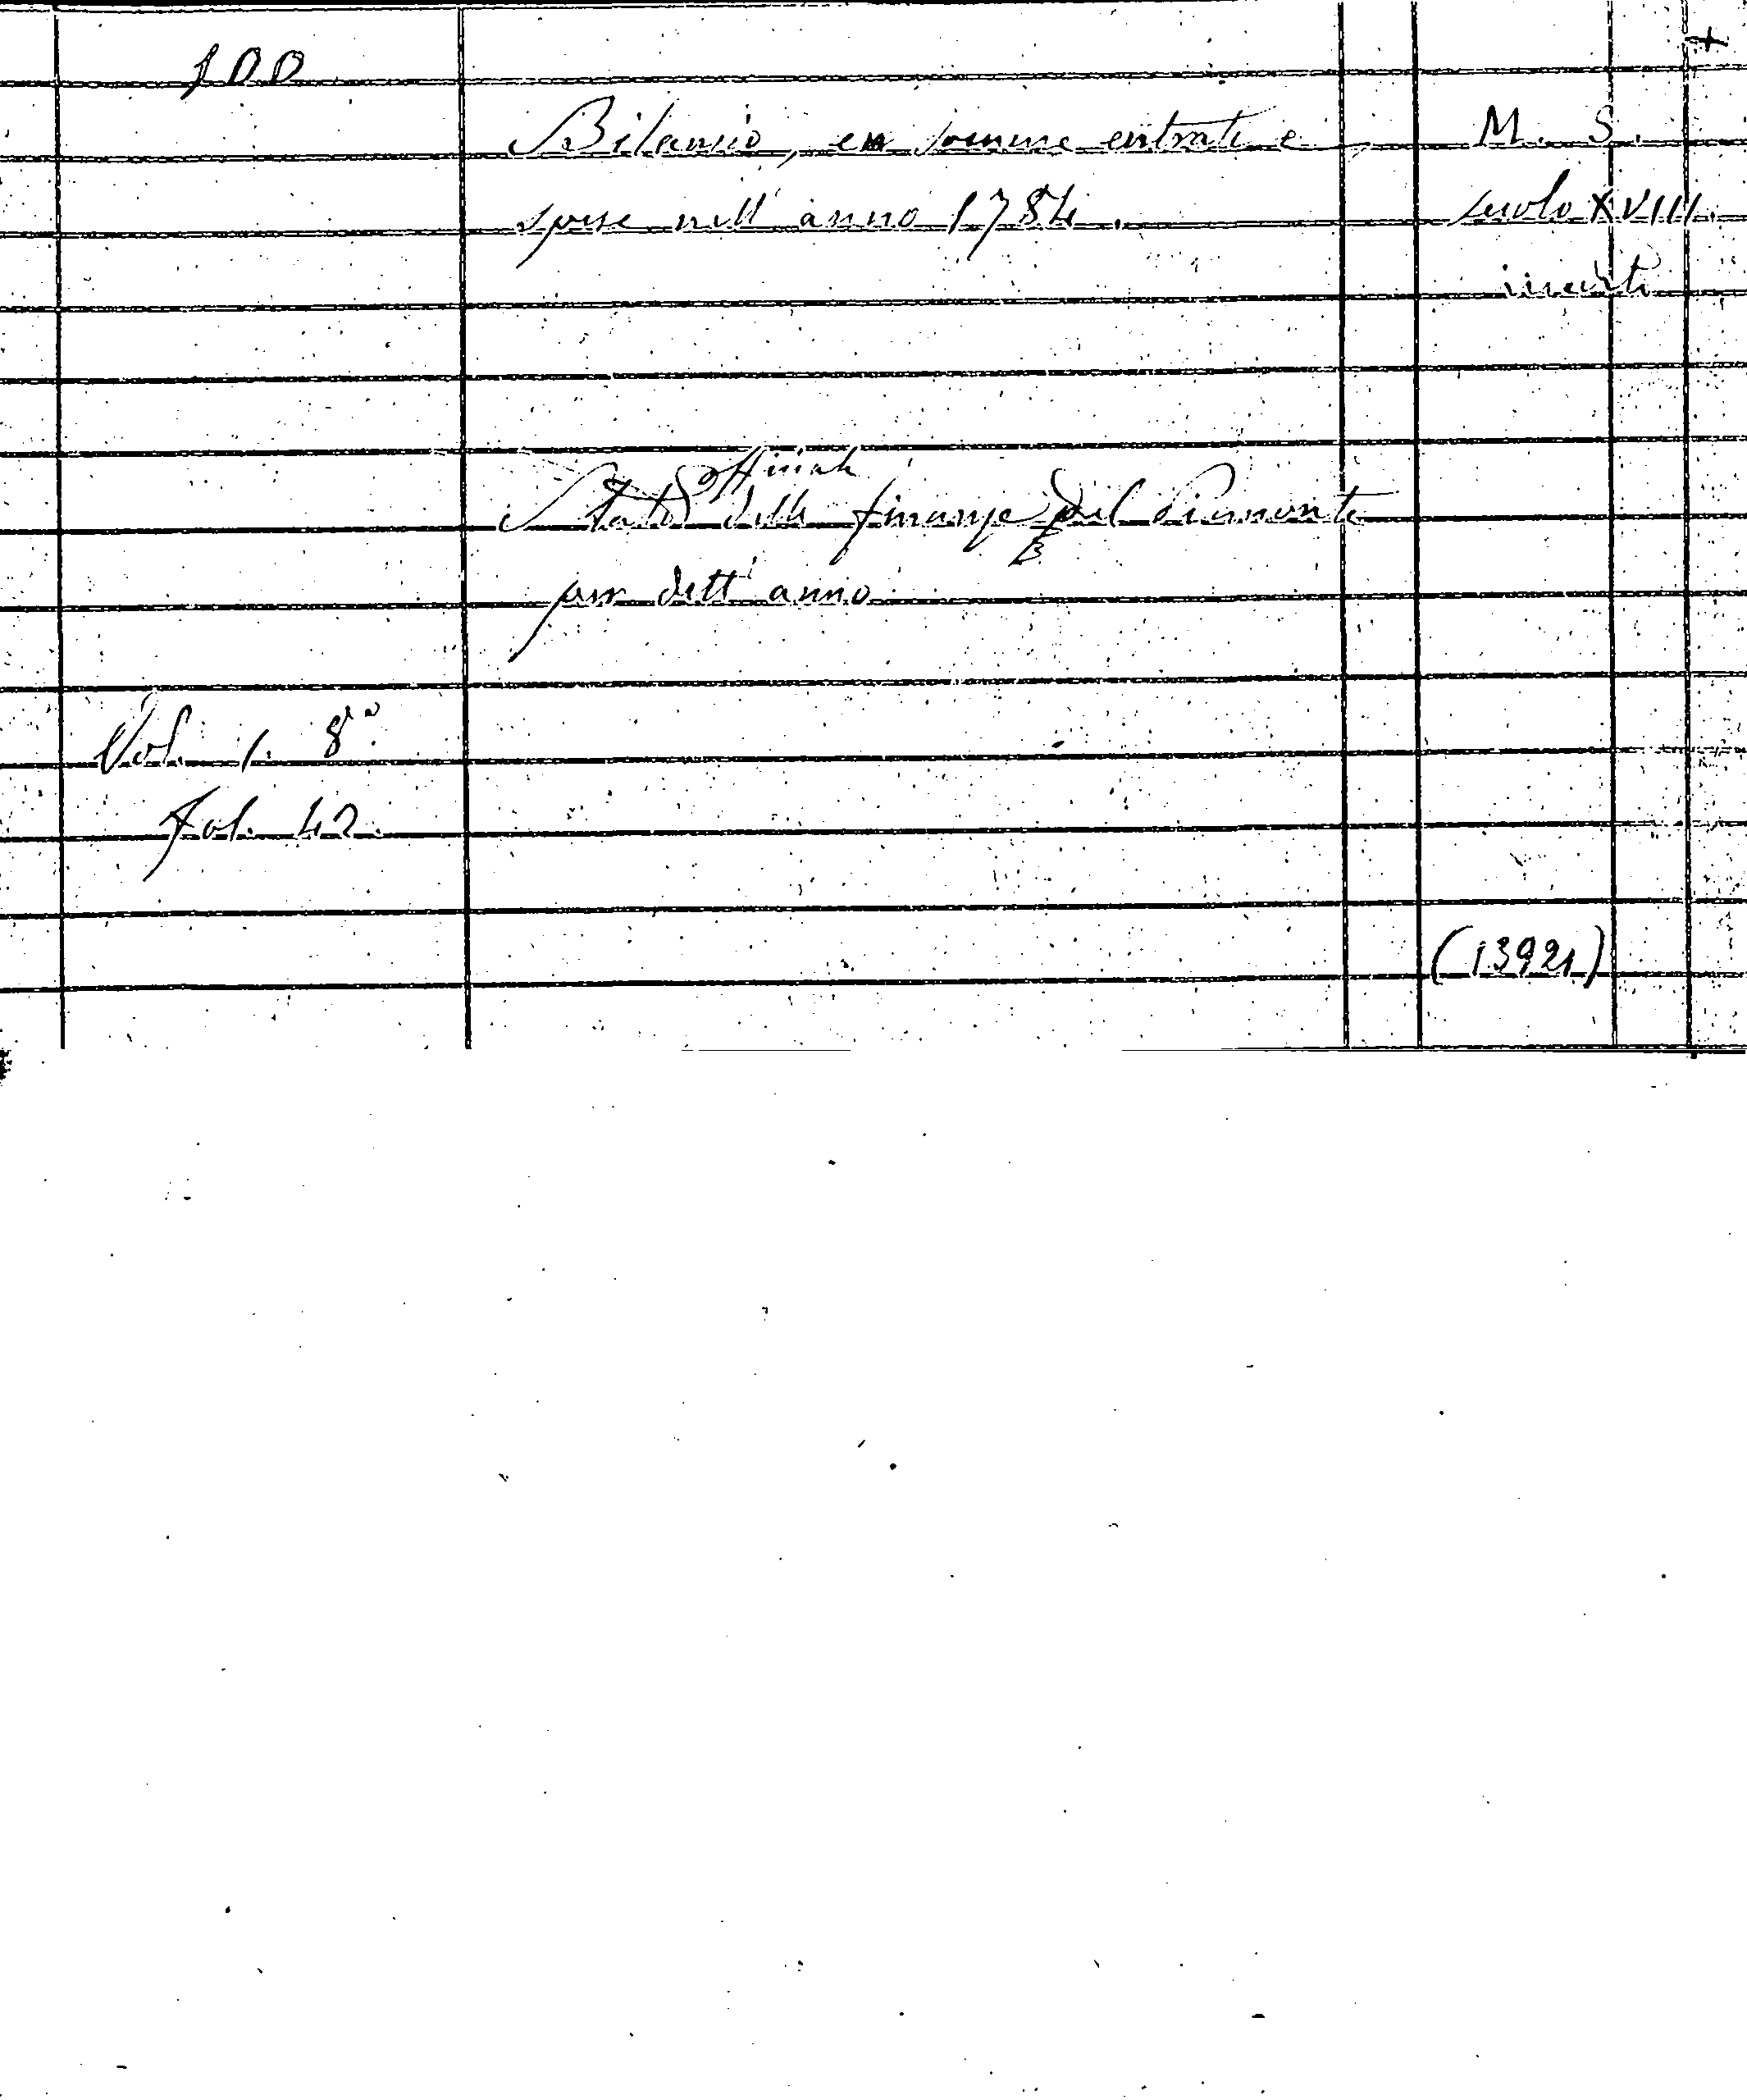 +
100
Bilancio, en somme entrate e M. S.
spese nell' anno 1784. secolo XVIII.
inserti
officiale
Stato delle finanze del Piemonte
per dett' anno
Vol. 1. 8vo
Fol. 42.
(13921)